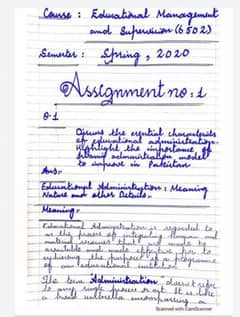 Course : Educational Management
and Supervision (6502)
Semester : Spring, 2020
Assignment no : 1
Q.1
Discuss the essential characteristics
of educational administration.
Highlight the importance of
administration model
to improve in Pakistan
Ans:-
Educational Administration: Meaning
Nature and other Details:-
Meaning:-
Educational Administration is regarded to
as the process of integrating human and
material resources that are made to
available and made effective for to
achieving the purposes of a programme
of an educational institution
The term Administration doesn't refer
to any single process or act. It is like
a broad umbrella encompassing a
Scanned with CamScanner